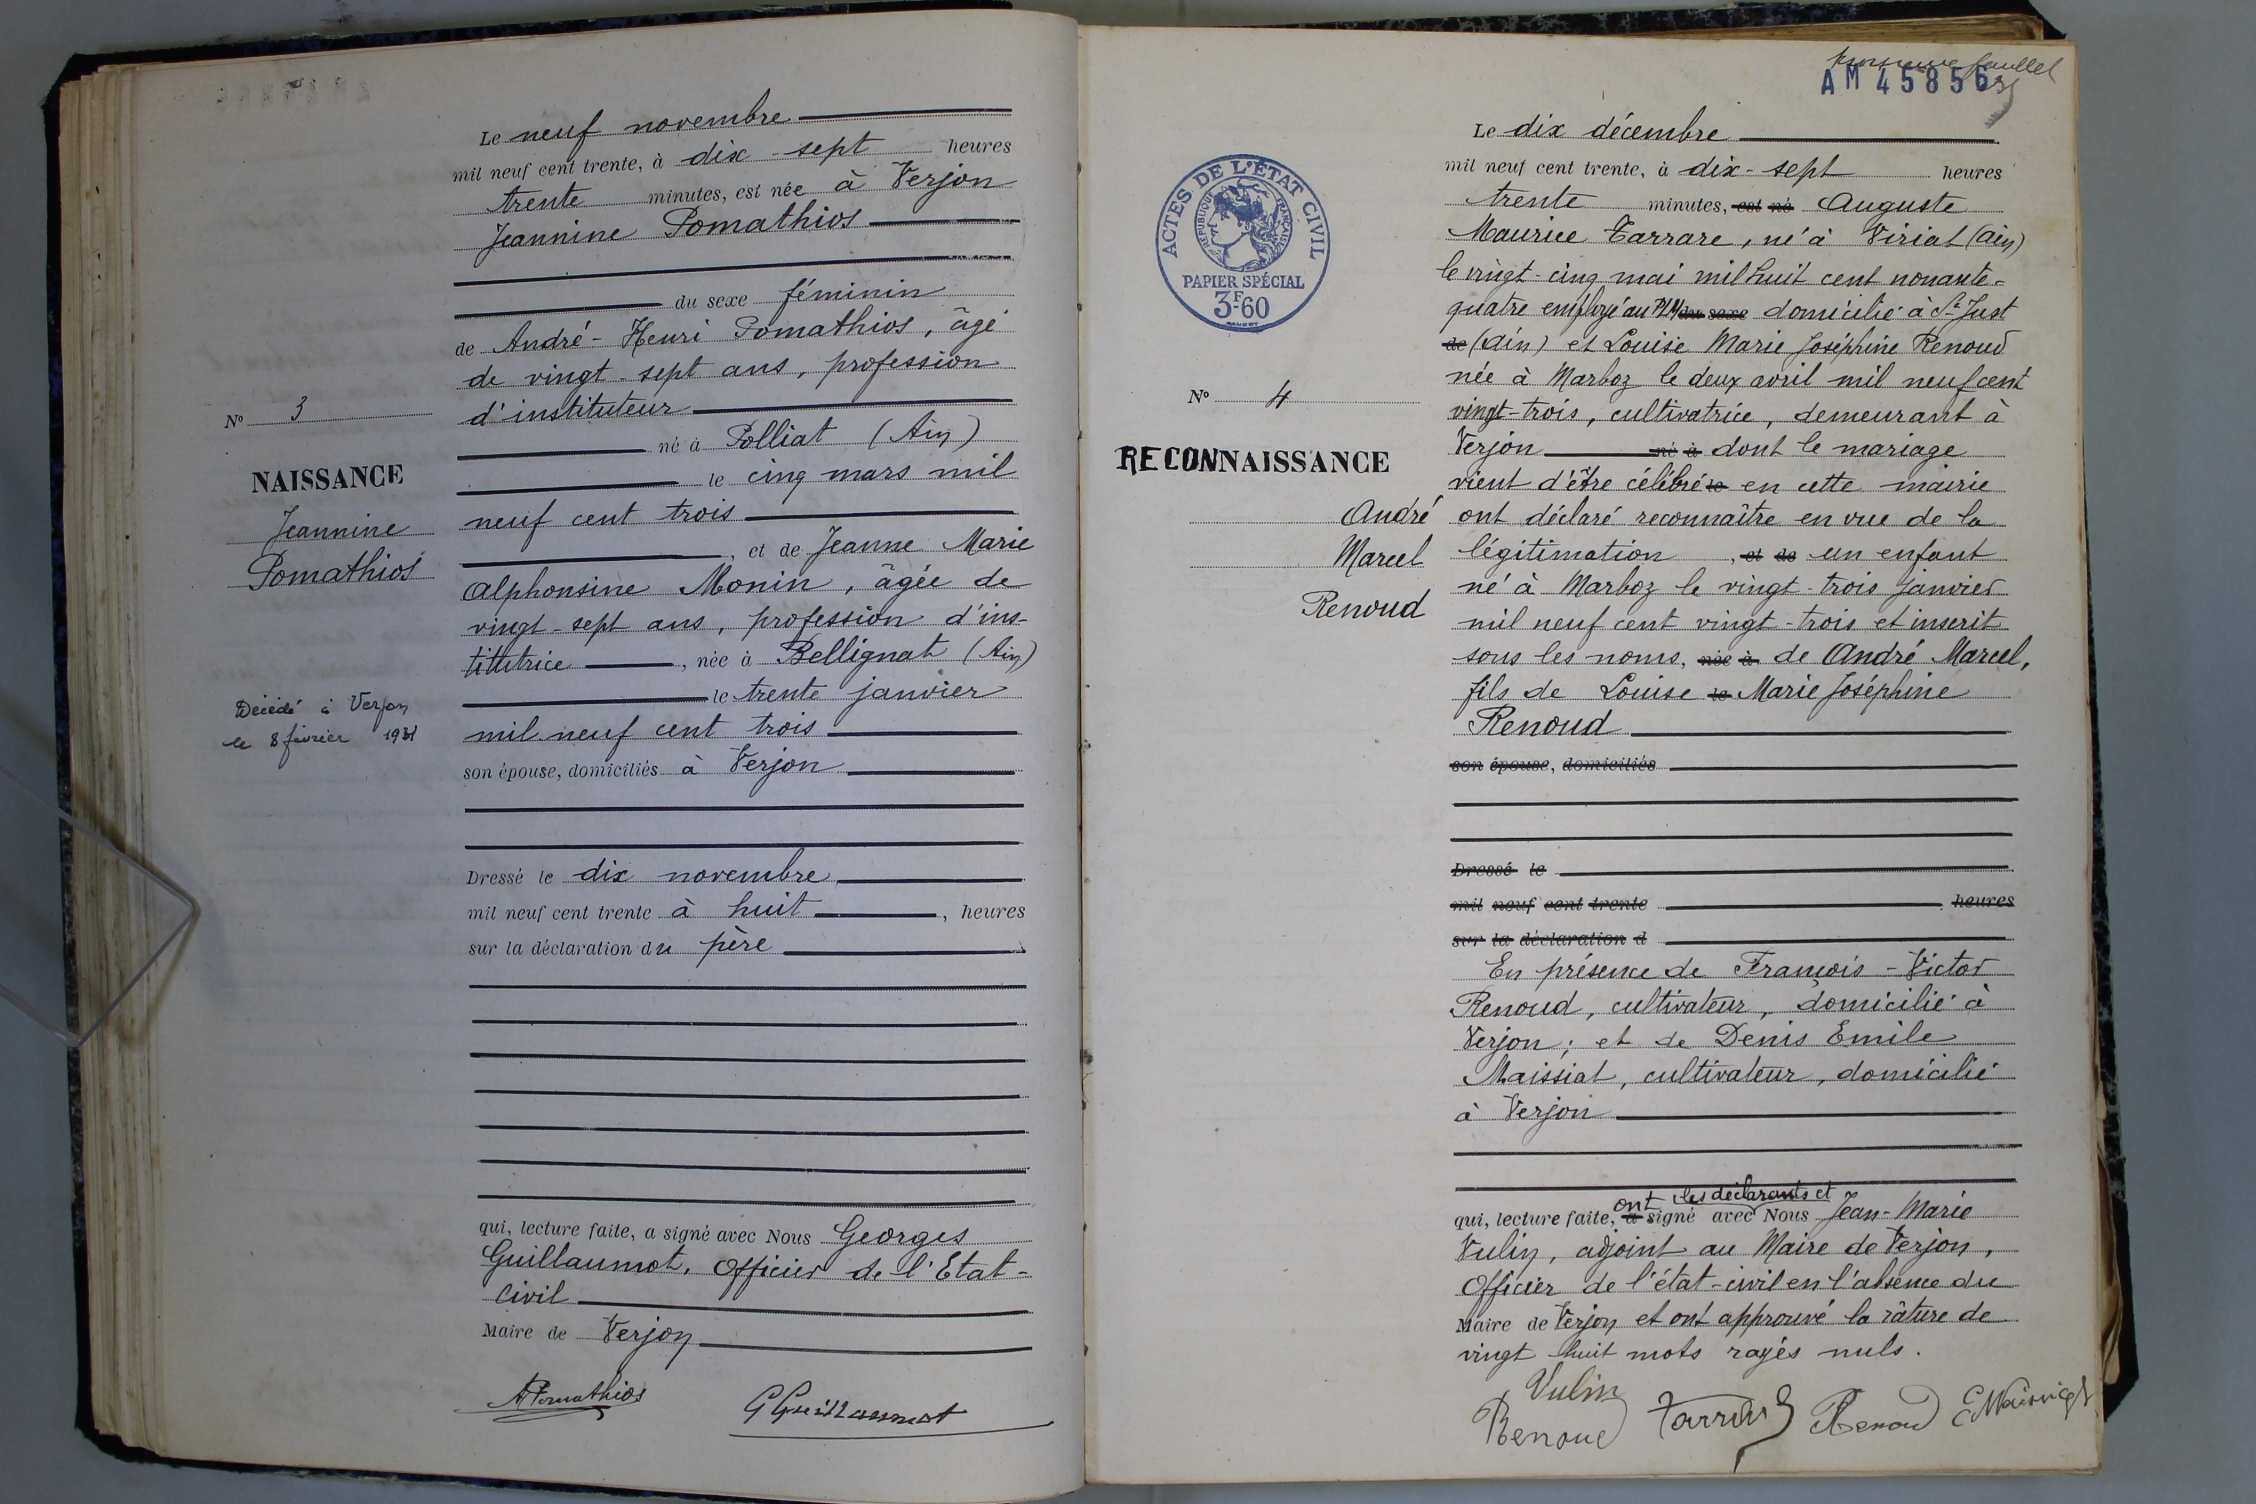 Le neuf novembre
mil neuf cent trente, à dix-sept heures
trente minutes, est née à Verjon
Jeannine Pomathios
du sexe féminin
de André-Henri Pomathios, âgé
de vingt-sept ans, profession
d'instituteur
né à Polliat (Ain)
le cinq mars mil
neuf cent trois
, et de Jeanne Marie
Alphonsine Monin, âgée de
vingt-sept ans, profession d'ins-
titutrice, née à Bellignat (Ain)
le trente janvier
mil neuf cent trois
son épouse, domiciliés à Verjon
Dressé le dix novembre
mil neuf cent trente à huit, heures
sur la déclaration du père
qui, lecture faite, a signé avec Nous Georges
Guillaumot, Officier de l'Etat-
Civil
Maire de Verjon
APomathios
GGuillaumot
N° 3
NAISSANCE
Jeannine
Pomathios
Décédé à Verjon
le 8 février 1931
AM 45856
ACTES DE L'ÉTAT CIVIL
RÉPUBLIQUE FRANÇAISE
PAPIER SPÉCIAL
3F60
N° 4
RECONNAISSANCE
André
Marcel
Renoud
Le dix décembre
mil neuf cent trente, à dix-sept heures
trente minutes, est né Auguste
Maurice Tarrare, né à Viriat (Ain)
le vingt-cinq mai mil huit cent nonante-
quatre employé au PLM du sexe domicilié à St Just
de (Ain) et Louise Marie Joséphine Renoud
née à Marboz le deux avril mil neuf cent
vingt-trois, cultivatrice, demeurant à
Verjon né à dont le mariage
vient d'être célébré le en cette mairie
ont déclaré reconnaître en vue de la
légitimation, et de un enfant
né à Marboz le vingt-trois janvier
mil neuf cent vingt-trois et inscrit
sous les noms, née à de André Marcel,
fils de Louise le Marie Joséphine
Renoud
son épouse, domiciliés
Dressé le
mil neuf cent trente heures
sur la déclaration d
En présence de François-Victor
Renoud, cultivateur, domicilié à
Verjon; et de Denis Emile
Maissiat, cultivateur, domicilié
à Verjon
ont les déclarants et
qui, lecture faite, a signé avec Nous Jean-Marie
Vulin, adjoint au Maire de Verjon,
Officier de l'état-civil en l'absence du
Maire de Verjon et ont approuvé la râture de
vingt huit mots rayés nuls.
Vulin
Renoud Tarrare Renoud EMaissiat